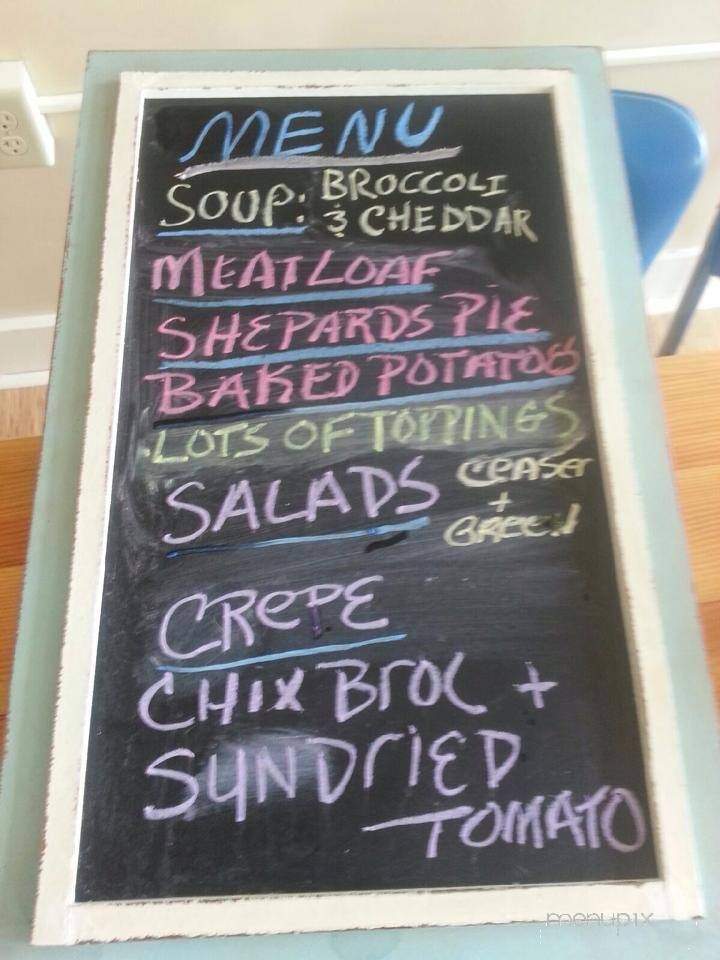 MENU
SOUP: BROCCOLI
& CHEDDAR
MEATLOAF
SHEPARDS PIE
BAKED POTATOS
LOTS OF TOPPINGS
SALADS CEASER
+
GREEN
CREPE
CHIX BROC +
SUNDRIED
TOMATO
menupix